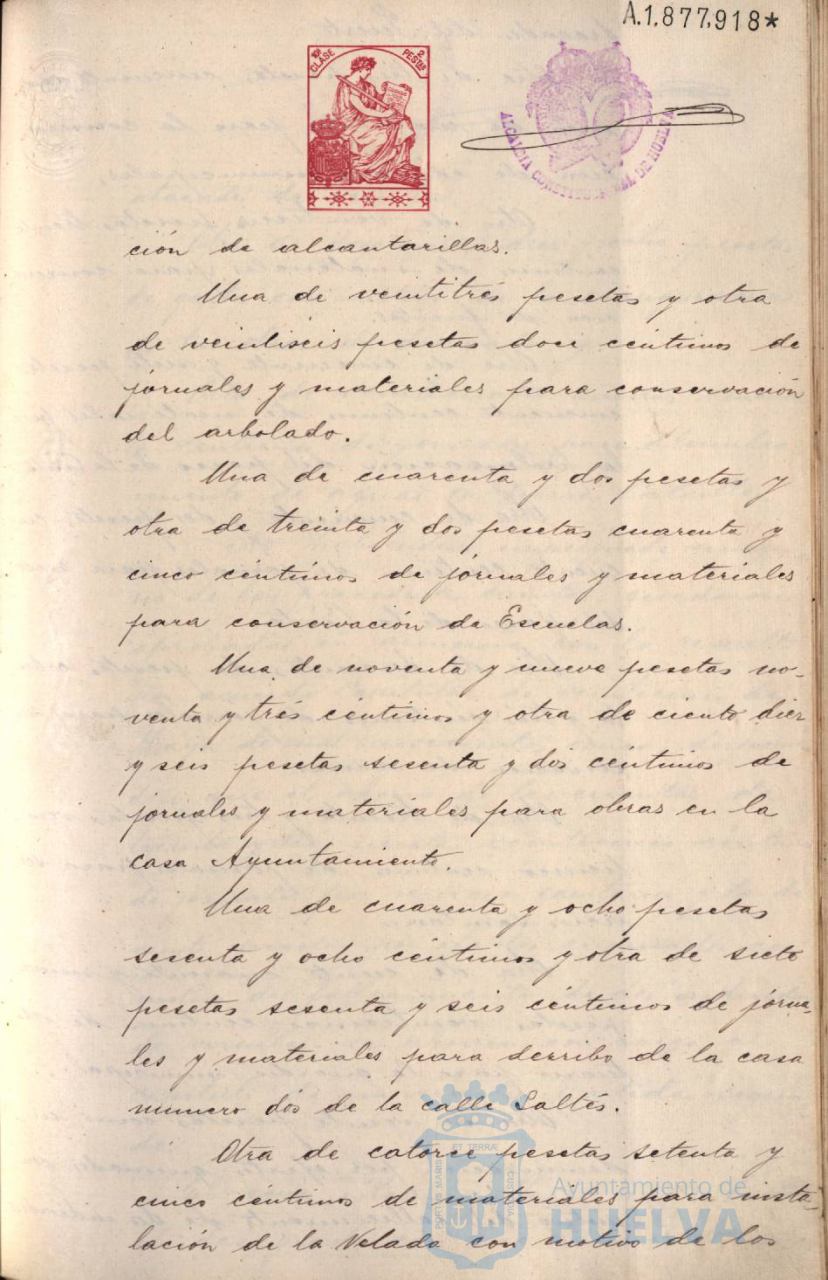 A.1.877.918*
10ª CLASE 2 PESTAS
ALCALDIA CONSTITUCIONAL DE HUELVA
ción de alcantarillas.
Una de veintitrés pesetas y otra
de veintiseis pesetas doce céntimos de
jornales y materiales para conservación
del arbolado.
Una de cuarenta y dos pesetas y
otra de treinta y dos pesetas cuarenta y
cinco céntimos de jornales y materiales
para conservación de Escuelas.
Una de noventa y nueve pesetas no-
venta y tres céntimos y otra de ciento diez
y seis pesetas sesenta y dos céntimos de
jornales y materiales para obras en la
casa Ayuntamiento.
Una de cuarenta y ocho pesetas
sesenta y ocho céntimos y otra de siete
pesetas sesenta y seis céntimos de jorna-
les y materiales para derribo de la casa
numero dos de la calle Saltés.
Otra de catorce pesetas setenta y
cinco céntimos de materiales para insta-
lación de la Velada con motivo de los
PORTUS MARIS ET TERRÆ CUSTODIA
Ayuntamiento de
HUELVA